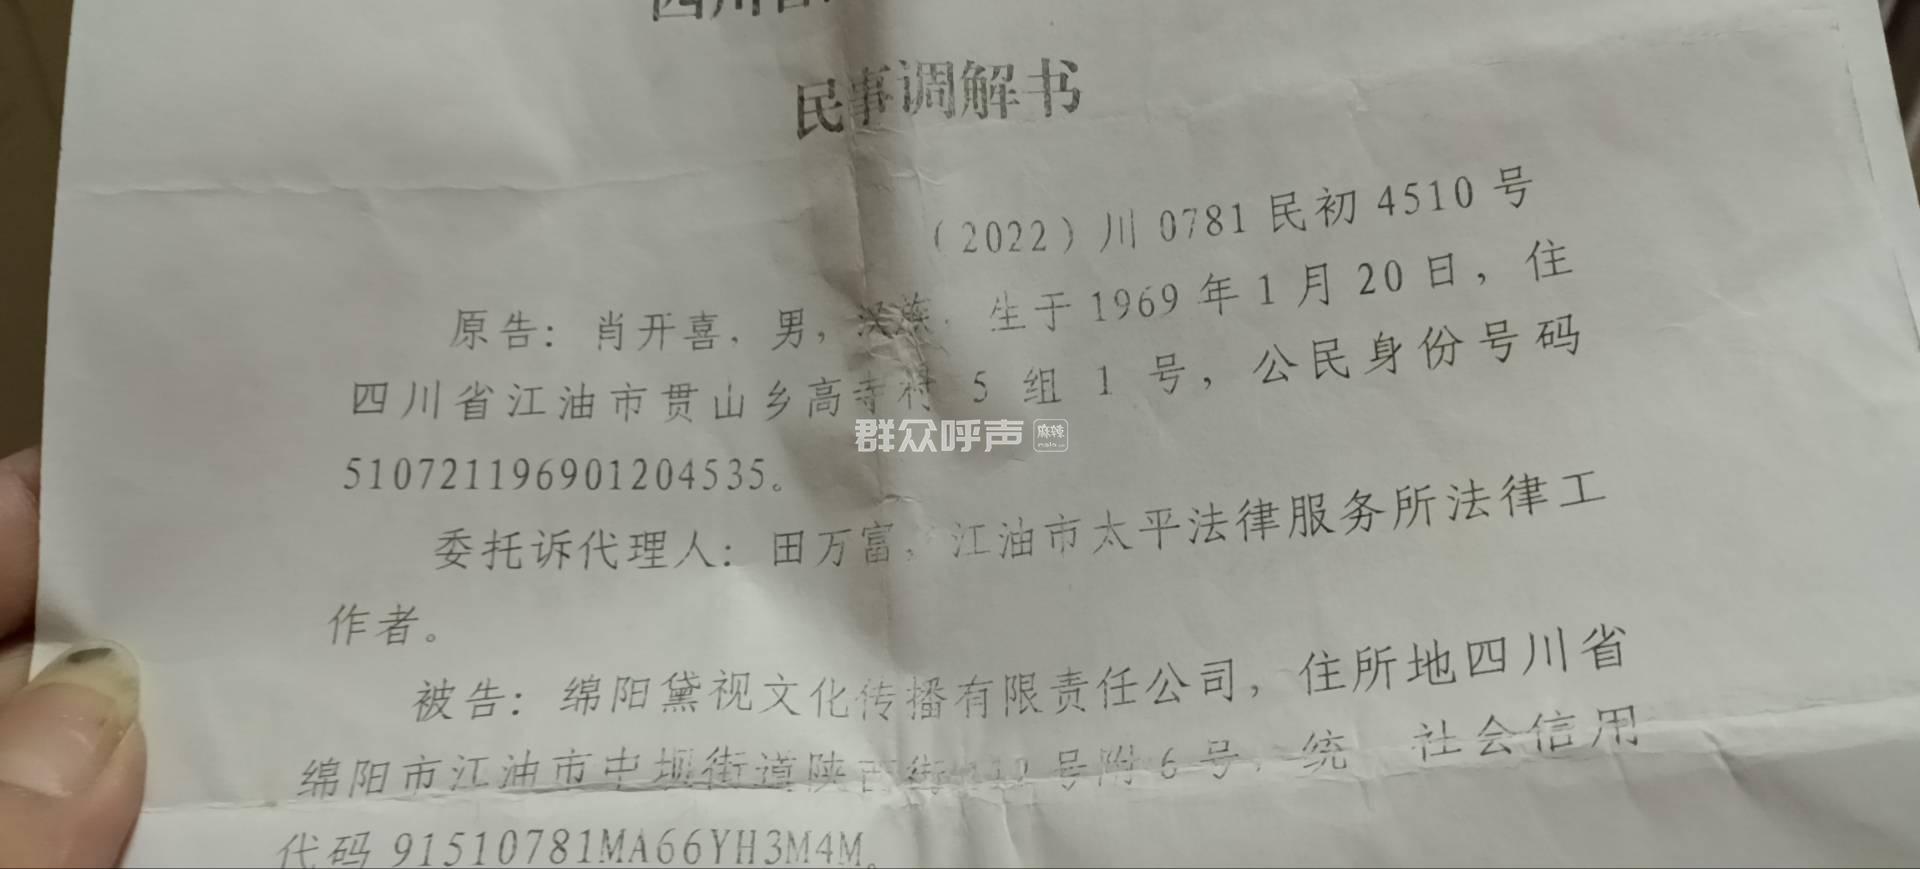 四川省
民事调解书
（2022）川 0781 民初 4510 号
原告：肖开喜，男，汉族，生于 1969 年 1 月 20 日，住
四川省江油市贯山乡高寺村 5 组 1 号，公民身份号码
510721196901204535。
群众呼声 麻辣
委托诉代理人：田万富，江油市太平法律服务所法律工
作者。
被告：绵阳黛视文化传播有限责任公司，住所地四川省
绵阳市江油市中坝街道陕西街 号附 6 号，统一社会信用
代码 91510781MA66YH3M4M。